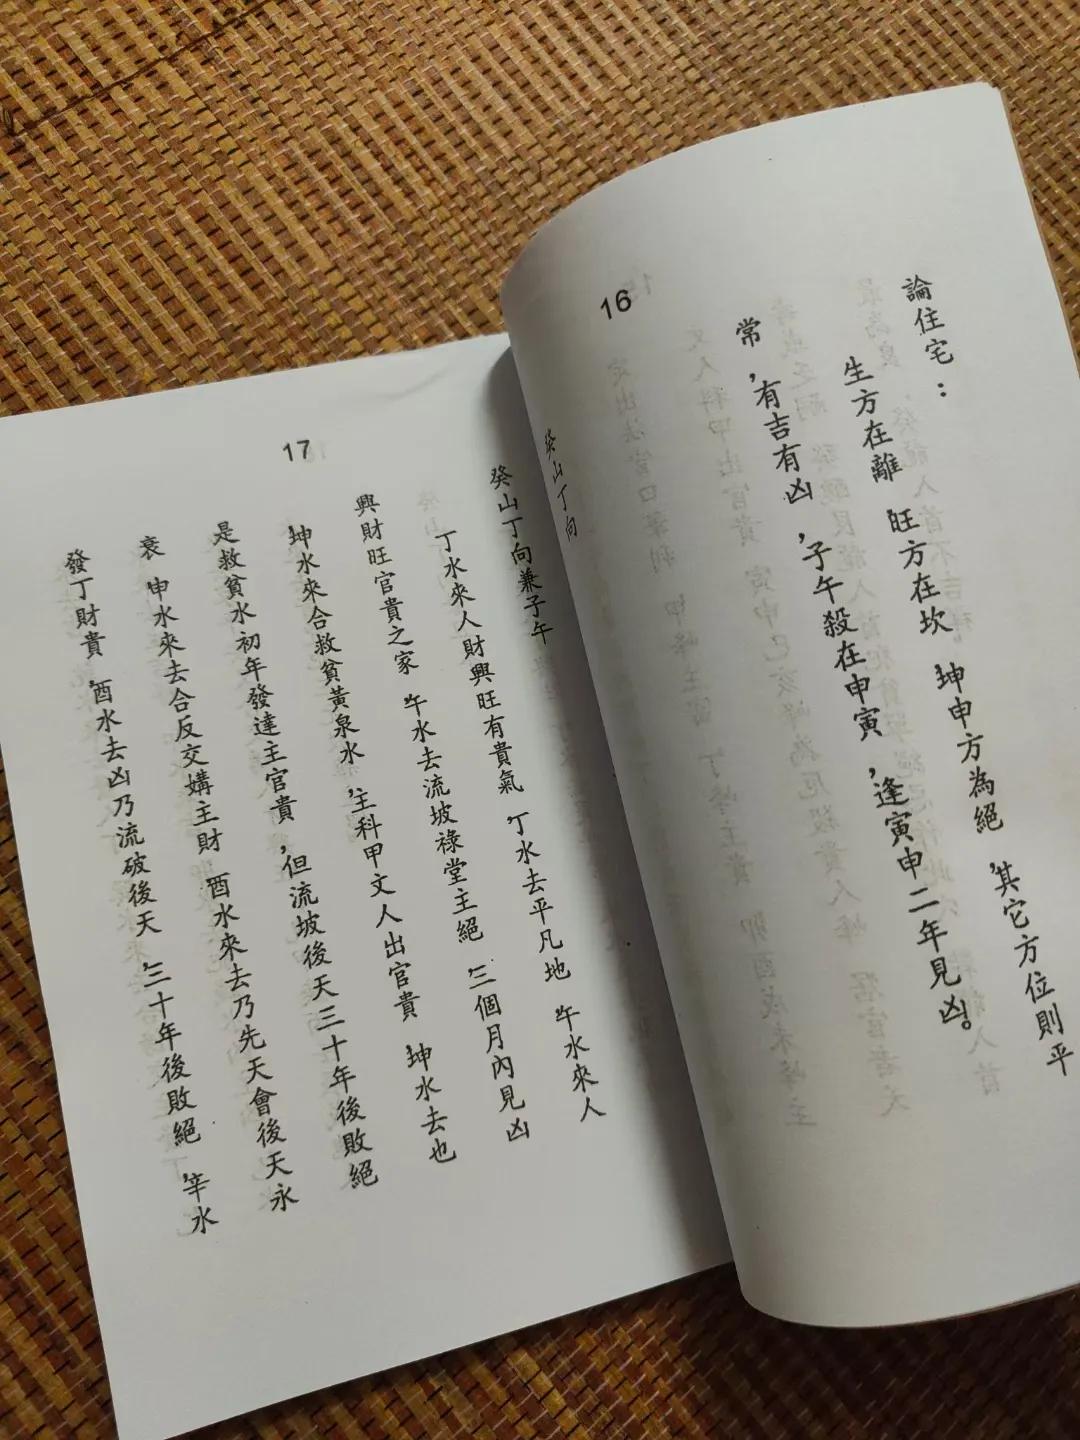 16
論住宅：
生方在離,旺方在坎,坤申方為絕,其它方位則平
常,有吉有凶,子午殺在申寅,逢寅申二年見凶。
癸山丁向
17
癸山丁向兼子午
丁水來人財興旺有貴氣,丁水去平凡地,午水來人
興財旺官貴之家,午水去流坡祿堂主絕,三個月內見凶
坤水來合救貧黃泉水,主科甲文人出官貴,坤水去也
是救貧水初年發達主官貴,但流坡後天三十年後敗絕
衰,申水來去合反交媾主財,酉水來去乃先天會後天永
發丁財貴,酉水去凶乃流破後天,三十年後敗絕,辛水